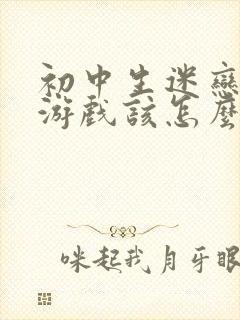 初中生迷戀
游戲該怎麼
咪起我月牙眼